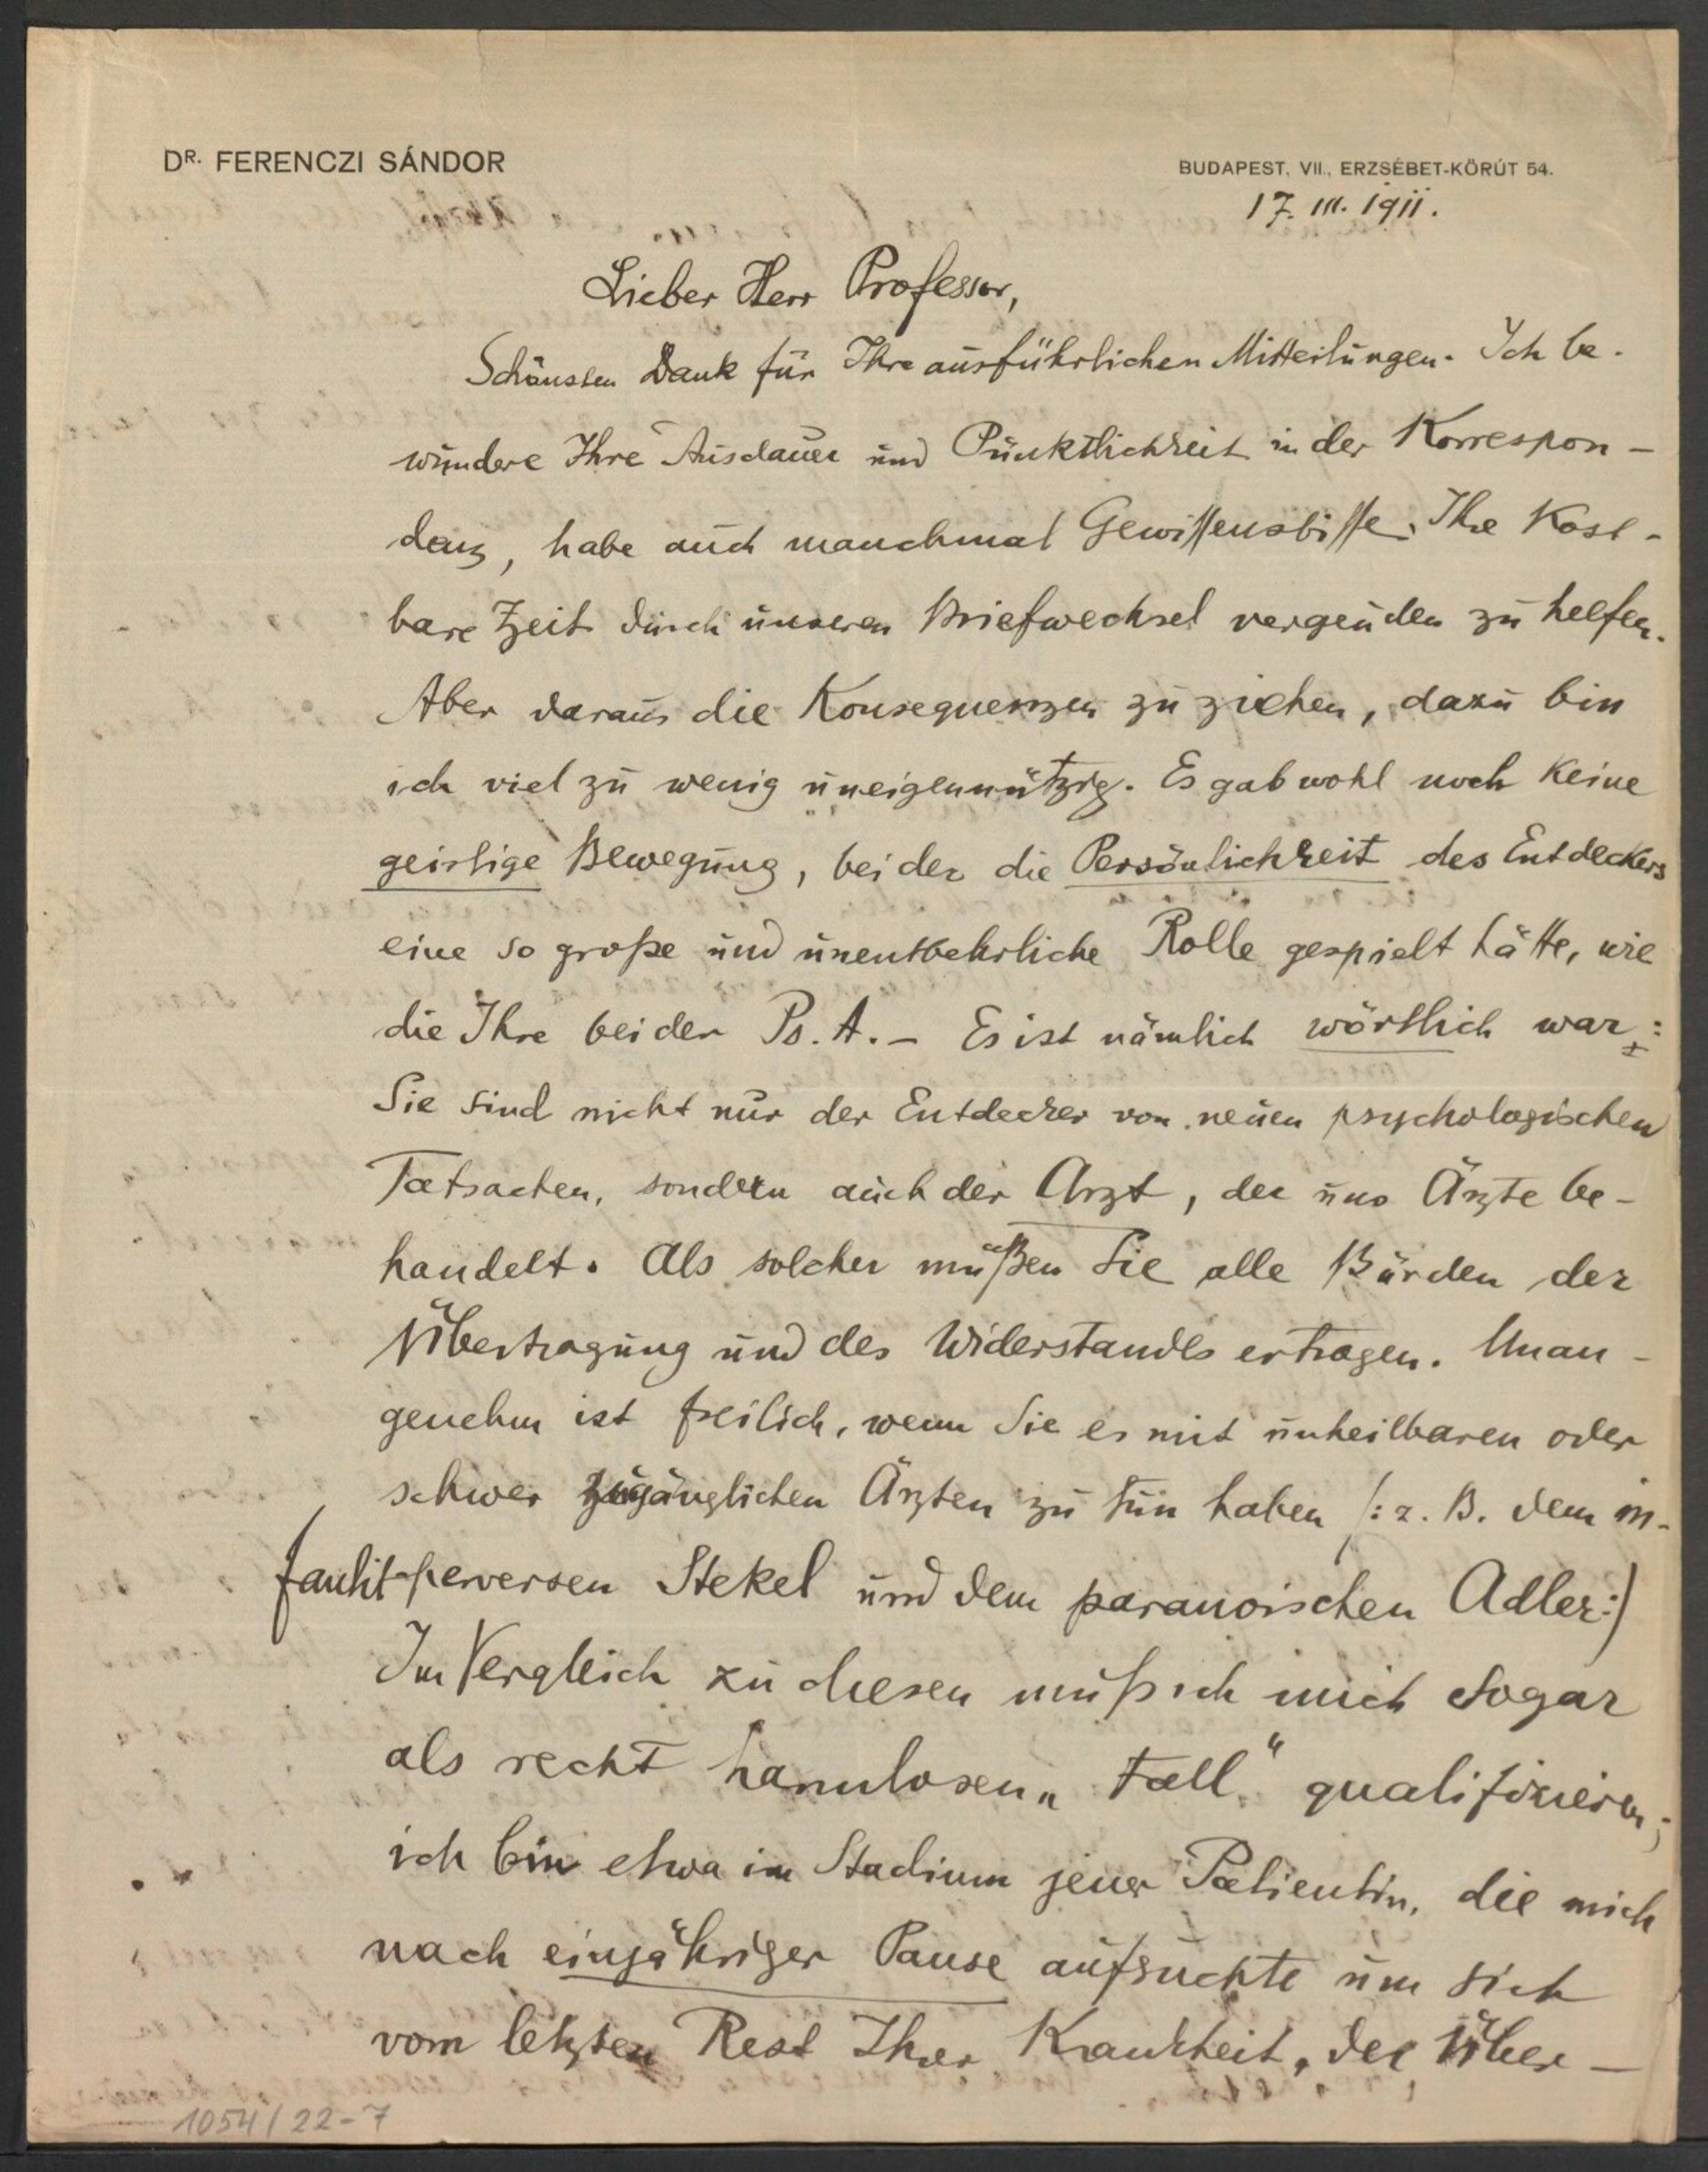 DR. FERENCZI SÁNDOR
BUDAPEST, VII., ERZSÉBET-KÖRÚT 54.
17. III. 1911.
Lieber Herr Professor,
Schönsten Dank für Ihre ausführlichen Mitteilungen. Ich be-
wundere Ihre Ausdauer und Pünktlichkeit in der Korrespon-
denz, habe auch manchmal Gewissensbisse, Ihre Kost-
bare Zeit durch unseren Briefwechsel vergeuden zu helfen.
Aber daraus die Konsequenzen zu ziehen, dazu bin
ich viel zu wenig uneigennützig. Es gab wohl noch keine
geistige Bewegung, bei der die Persönlichkeit des Entdeckers
eine so große und unentbehrliche Rolle gespielt hätte, wie
die Ihre bei der Ps. A. – Es ist nämlich wörtlich war:
Sie sind nicht nur der Entdecker von neuen psychologischen
Tatsachen, sondern auch der Arzt, der uns Ärzte be-
handelt. Als solcher müßen Sie alle Bürden der
Übertragung und des Widerstandes ertragen. Unan-
genehm ist freilich, wenn Sie es mit unheilbaren oder
schwer zugänglichen Ärzten zu tun haben /: z. B. dem in-
fantil-perversen Stekel und dem paranoischen Adler :/
Im Vergleich zu diesen muß ich mich sogar
als recht harmlosen „Fall“ qualifizieren;
ich bin etwa im Stadium jener Patientin, die mich
nach einjähriger Pause aufsuchte um sich
vom letzten Rest Ihrer Krankheit, der Über-
1054/22-7